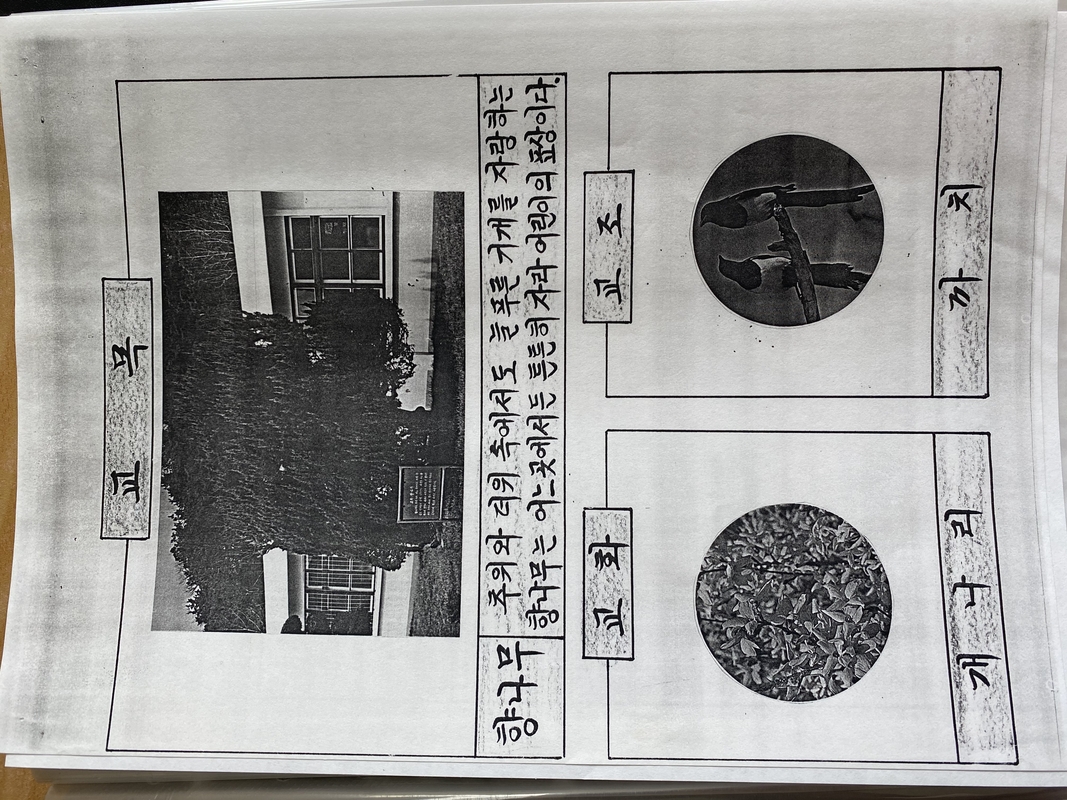 교 목
향나무
추위와 더위 속에서도 늘 푸른 기개를 자랑하는
향나무는 어느곳에서든 튼튼히 자라 어린이의 표상이다.
교 화
개 나 리
교 조
까 치